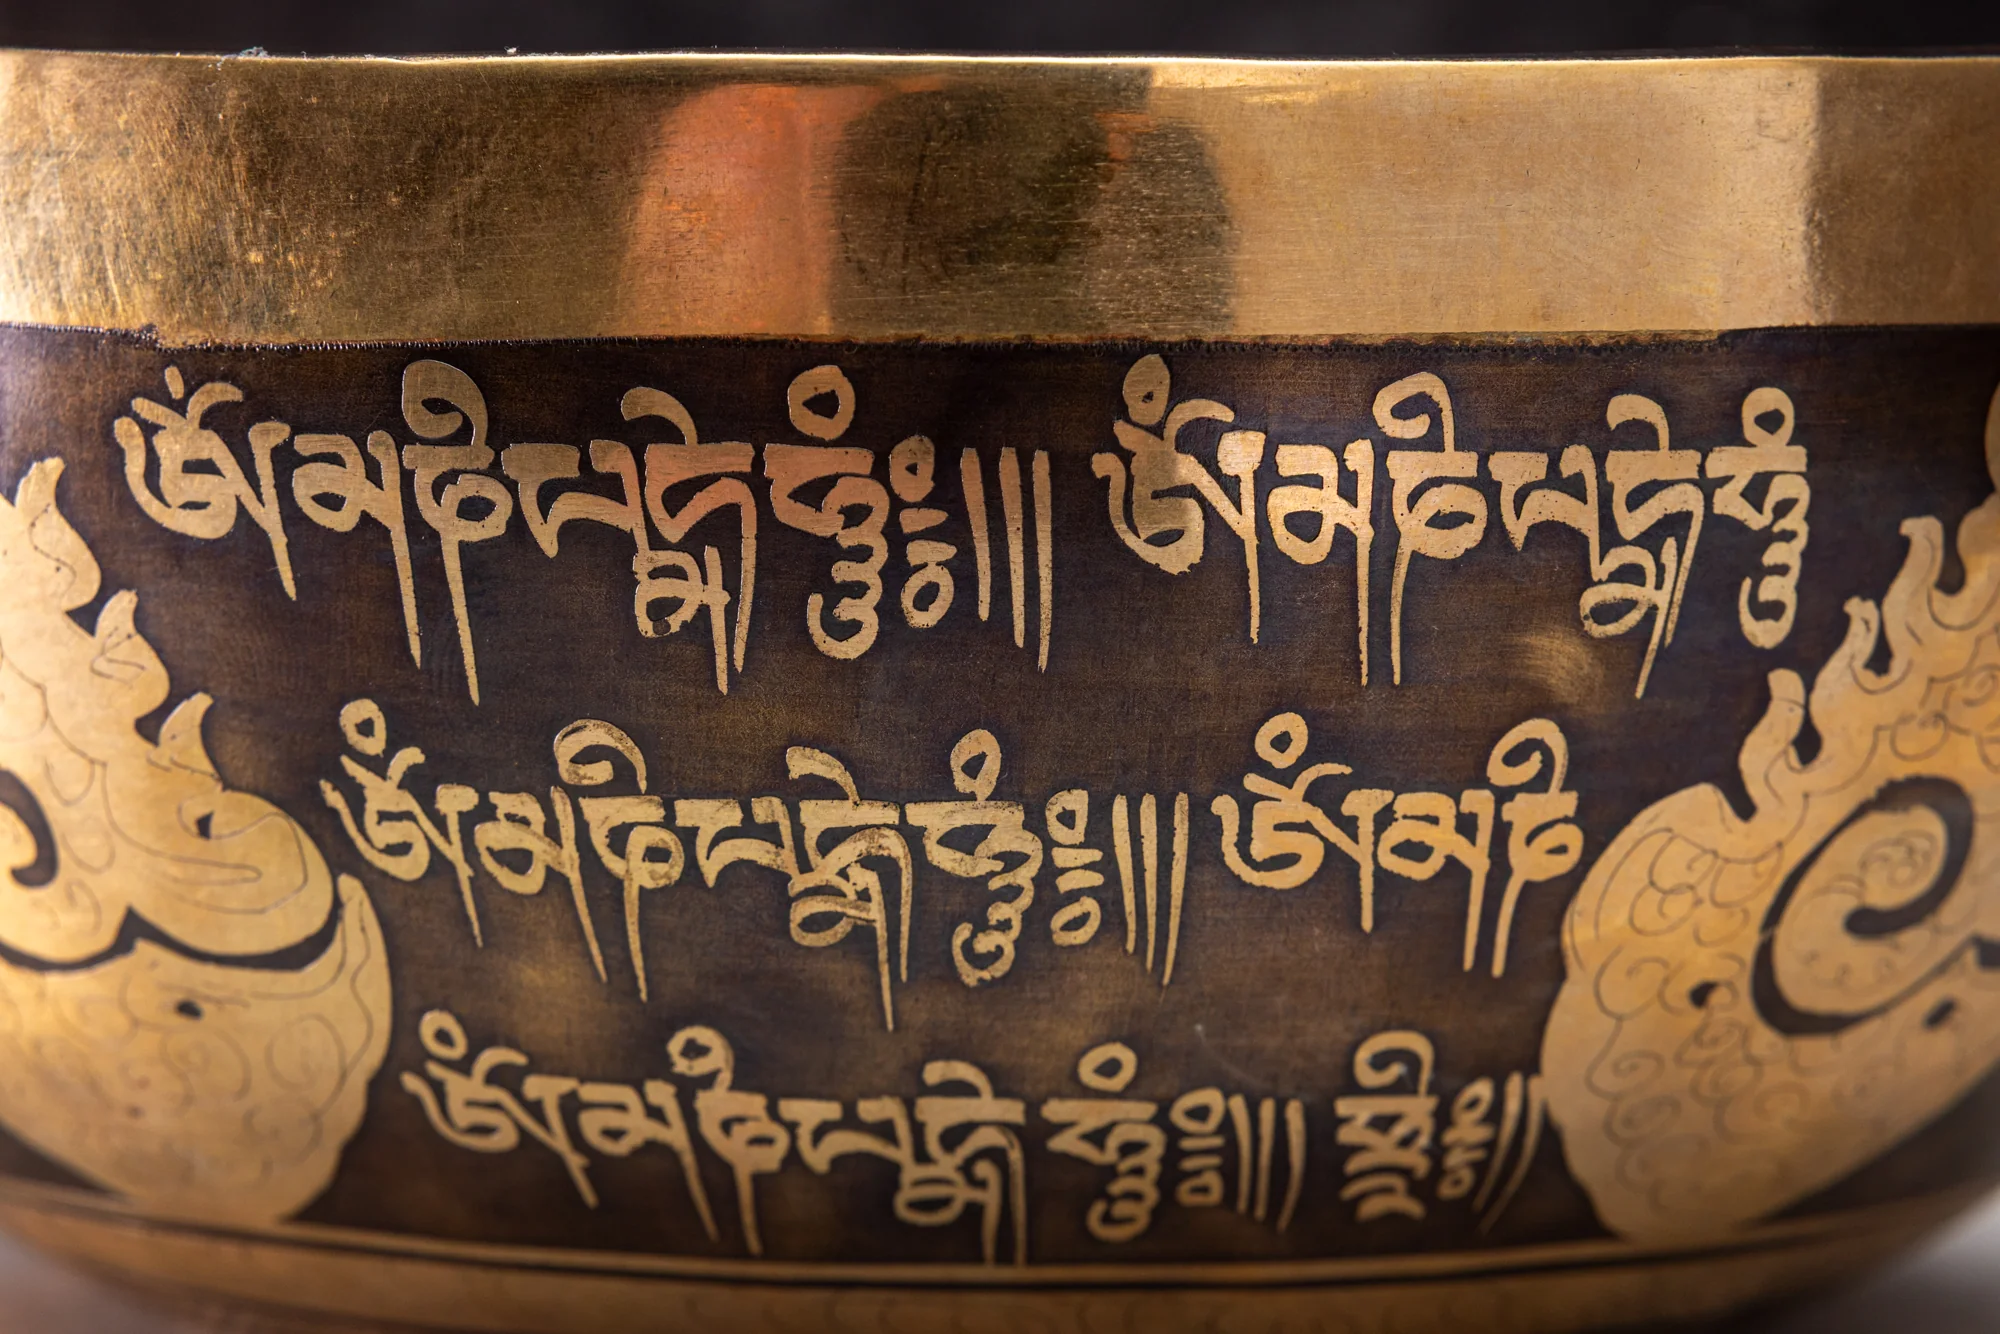 ཨོཾ་མ་ཎི་པདྨེ་ཧཱུྃ༔ ༎ ཨོཾ་མ་ཎི་པདྨེ་ཧཱུྃ
ཨོཾ་མ་ཎི་པདྨེ་ཧཱུྃ༔ ༎ ཨོཾ་མ་ཎི
ཨོཾ་མ་ཎི་པདྨེ་ཧཱུྃ༔ ༎ ཧྲཱི༔ ༎